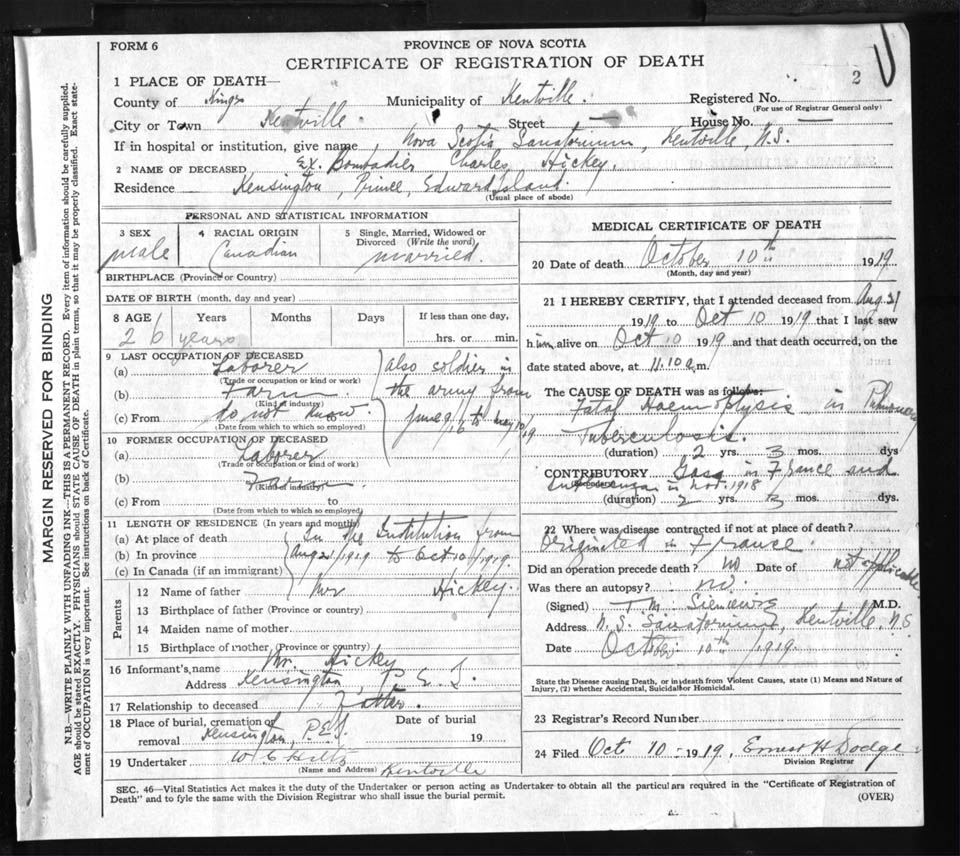 FORM 6
PROVINCE OF NOVA SCOTIA
CERTIFICATE OF REGISTRATION OF DEATH
2
1 PLACE OF DEATH—
County of Kings Municipality of Kentville. Registered No.
(For use of Registrar General only)
City or Town Kentville Street — House No. —
If in hospital or institution, give name Nova Scotia Sanatorium, Kentville, N.S.
2 NAME OF DECEASED Ex. Bombadier Charles Hickey.
Residence Kensington, Prince, Edward Island.
(Usual place of abode)
PERSONAL AND STATISTICAL INFORMATION
3 SEX 4 RACIAL ORIGIN 5 Single, Married, Widowed or Divorced (Write the word)
male Canadian married.
BIRTHPLACE (Province or Country)
DATE OF BIRTH (month, day and year)
8 AGE Years Months Days If less than one day,
26 years hrs. or min.
9 LAST OCCUPATION OF DECEASED
(a) Laborer
(Trade or occupation or kind or work)
(b) Farm
(Kind of industry)
(c) From do not know.
(Date from which to which so employed)
also soldier in
the army from
June 9/16 to may 10/19
10 FORMER OCCUPATION OF DECEASED
(a) Laborer
(Trade or occupation or kind of work)
(b) Farm
(Kind of industry)
(c) From to
(Date from which to which so employed)
11 LENGTH OF RESIDENCE (In years and months)
(a) At place of death In the Institution from
(b) In province Aug 21/1919 to Oct 10/1919.
(c) In Canada (if an immigrant)
Parents
12 Name of father Mr Hickey.
13 Birthplace of father (Province or country)
14 Maiden name of mother
15 Birthplace of mother, (Province or country)
16 Informant's name Mr. Hickey
Address Kensington, P.E.I.
17 Relationship to deceased Father.
18 Place of burial, cremation or removal Kensington, P.E.I. Date of burial 19
19 Undertaker W C Hiltz
(Name and Address) Kentville
MEDICAL CERTIFICATE OF DEATH
20 Date of death October 10th 1919
(Month, day and year)
21 I HEREBY CERTIFY, that I attended deceased from Aug. 21
1919 to Oct 10 1919 that I last saw
him alive on Oct 10 1919 and that death occurred, on the
date stated above, at 11.10 a.m.
The CAUSE OF DEATH was as follows:
Fatal Haemoptysis in Pulmonary
Tuberculosis.
(duration) 2 yrs. 3 mos. dys
CONTRIBUTORY Gass in France and
Influenza in Nov. 1918
(duration) 2 yrs. 3 mos. dys.
22 Where was disease contracted if not at place of death?
Originated in France.
Did an operation precede death? No Date of not applicable
Was there an autopsy? No.
(Signed) T. M. M.D.
Address N. S. Sanatorium, Kentville, N.S.
Date October 10th 1919.
State the Disease causing Death, or in death from Violent Causes, state (1) Means and Nature of
Injury, (2) whether Accidental, Suicidal or Homicidal.
23 Registrar's Record Number
24 Filed Oct 10 - 1919, Ernest H Dodge
Division Registrar
SEC. 46—Vital Statistics Act makes it the duty of the Undertaker or person acting as Undertaker to obtain all the particulars required in the "Certificate of Registration of
Death" and to fyle the same with the Division Registrar who shall issue the burial permit.
(OVER)
MARGIN RESERVED FOR BINDING
N.B.—WRITE PLAINLY WITH UNFADING INK—THIS IS A PERMANENT RECORD. Every item of information should be carefully supplied.
AGE should be stated EXACTLY. PHYSICIANS should STATE CAUSE OF DEATH in plain terms, so that it may be properly classified. Exact statement of OCCUPATION is very important. See instructions on back of Certificate.